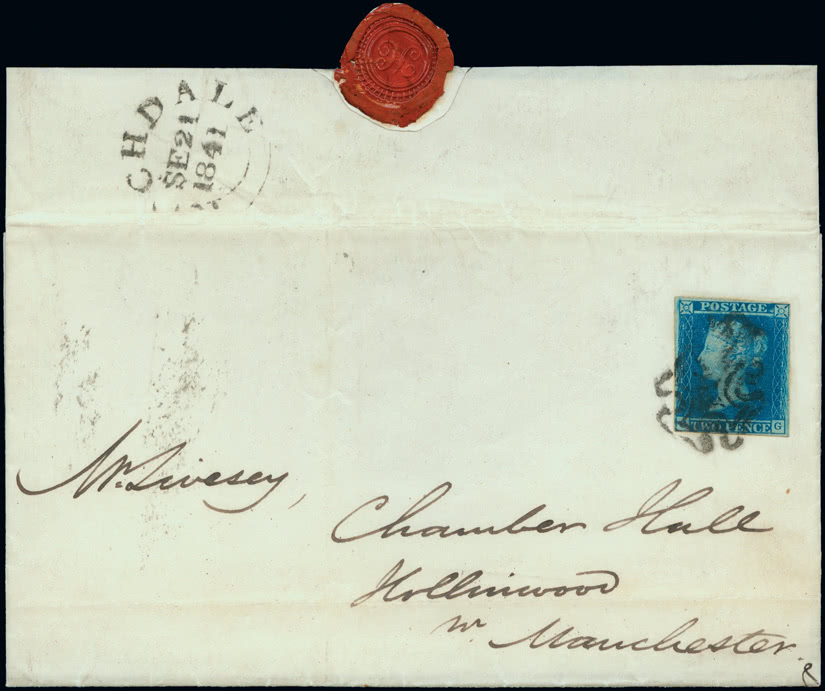 CHDALE
SE 21
1841
POSTAGE
TWO PENCE
G
Mr. Livesey,
Chamber Hall
Hollinwood
nr. Manchester.